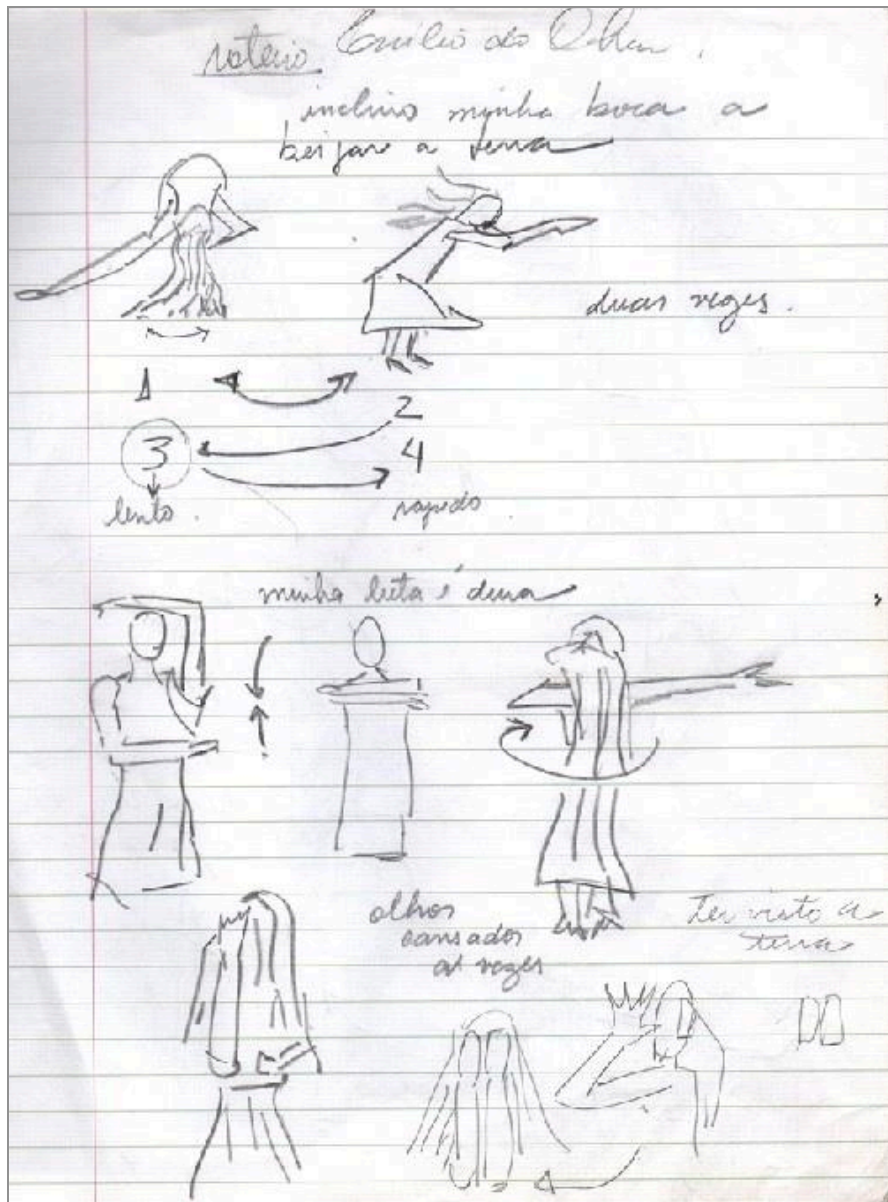 roteiro
inclino minha boca a
beijar a terra
duas vezes.
1
2
3
4
lento.
rapido.
minha luta é dura
olhos
cansados
as vezes
Ter visto a
terra